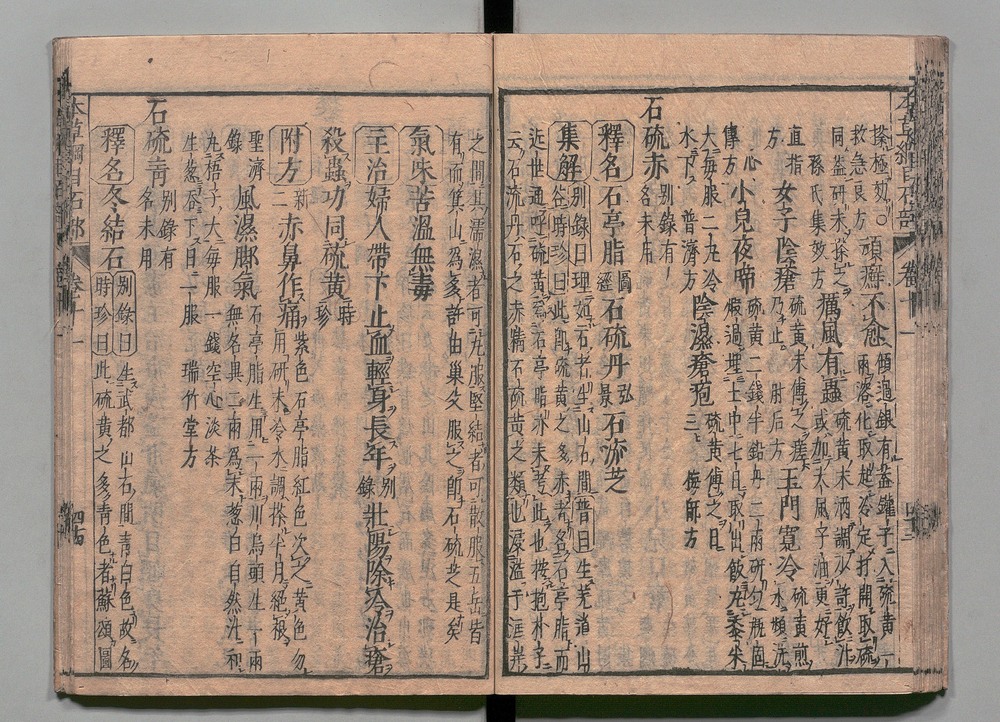 搽極効○
救急良方
頑癬不愈
傾過銀有盖鑵子入硫黄一
兩溶化取起冷定打開取硫
同盖研末搽之
孫氏集効方
癘風有蟲
硫黄末酒調少許飲汁
或加大風子油更好
直指
方
女子陰瘡
硫黄末傅之瘥
乃止 肘后方
玉門寬冷
硫黄煎
水頻洗
心
傳方
小兒夜啼
硫黄二錢半鉛丹二兩研勻瓶固
煅過埋土中七日取出飯丸黍米
大每服二丸冷
水下 普濟方
陰濕瘡疱
硫黄傅之日
三 梅師方
石硫赤
別録有
名未用
釋名石亭脂 圖經 石硫丹 弘景 石流芝
集解
別録曰理如石者生山石間普曰生羌道山
谷時珍曰此即硫黄之多赤者名石亭脂而
近世通呼硫黄為石亭脂亦未考此也按抱朴子
云石流丹石之赤精石硫黄之類也浸溢于涯岸
之間其濡濕者可丸服堅結者可散服五岳皆
有而箕山為多許由巢父服之即石硫芝是矣
氣味苦溫無毒
主治婦人帶下止血輕身長年 別録 壯陽除冷治瘡
殺蟲功同硫黄 時珍
附方 新二
赤鼻作痛
紫色石亭脂紅色次之黄色勿
用研末冷水調搽半月絶根
聖濟
録
風濕脚氣
石亭脂生用一兩川烏頭生一兩
無名異二兩為末葱白自然汁和
丸梧子大每服一錢空心淡茶
生葱呑下日二服 瑞竹堂方
石硫青
別録有
名未用
釋名冬結石
別録曰生武都山石間青白色故名
時珍曰此硫黄之多青色者蘇頌圖
本草綱目石部 卷十一 四十三
本草綱目石部 卷十一 四十四